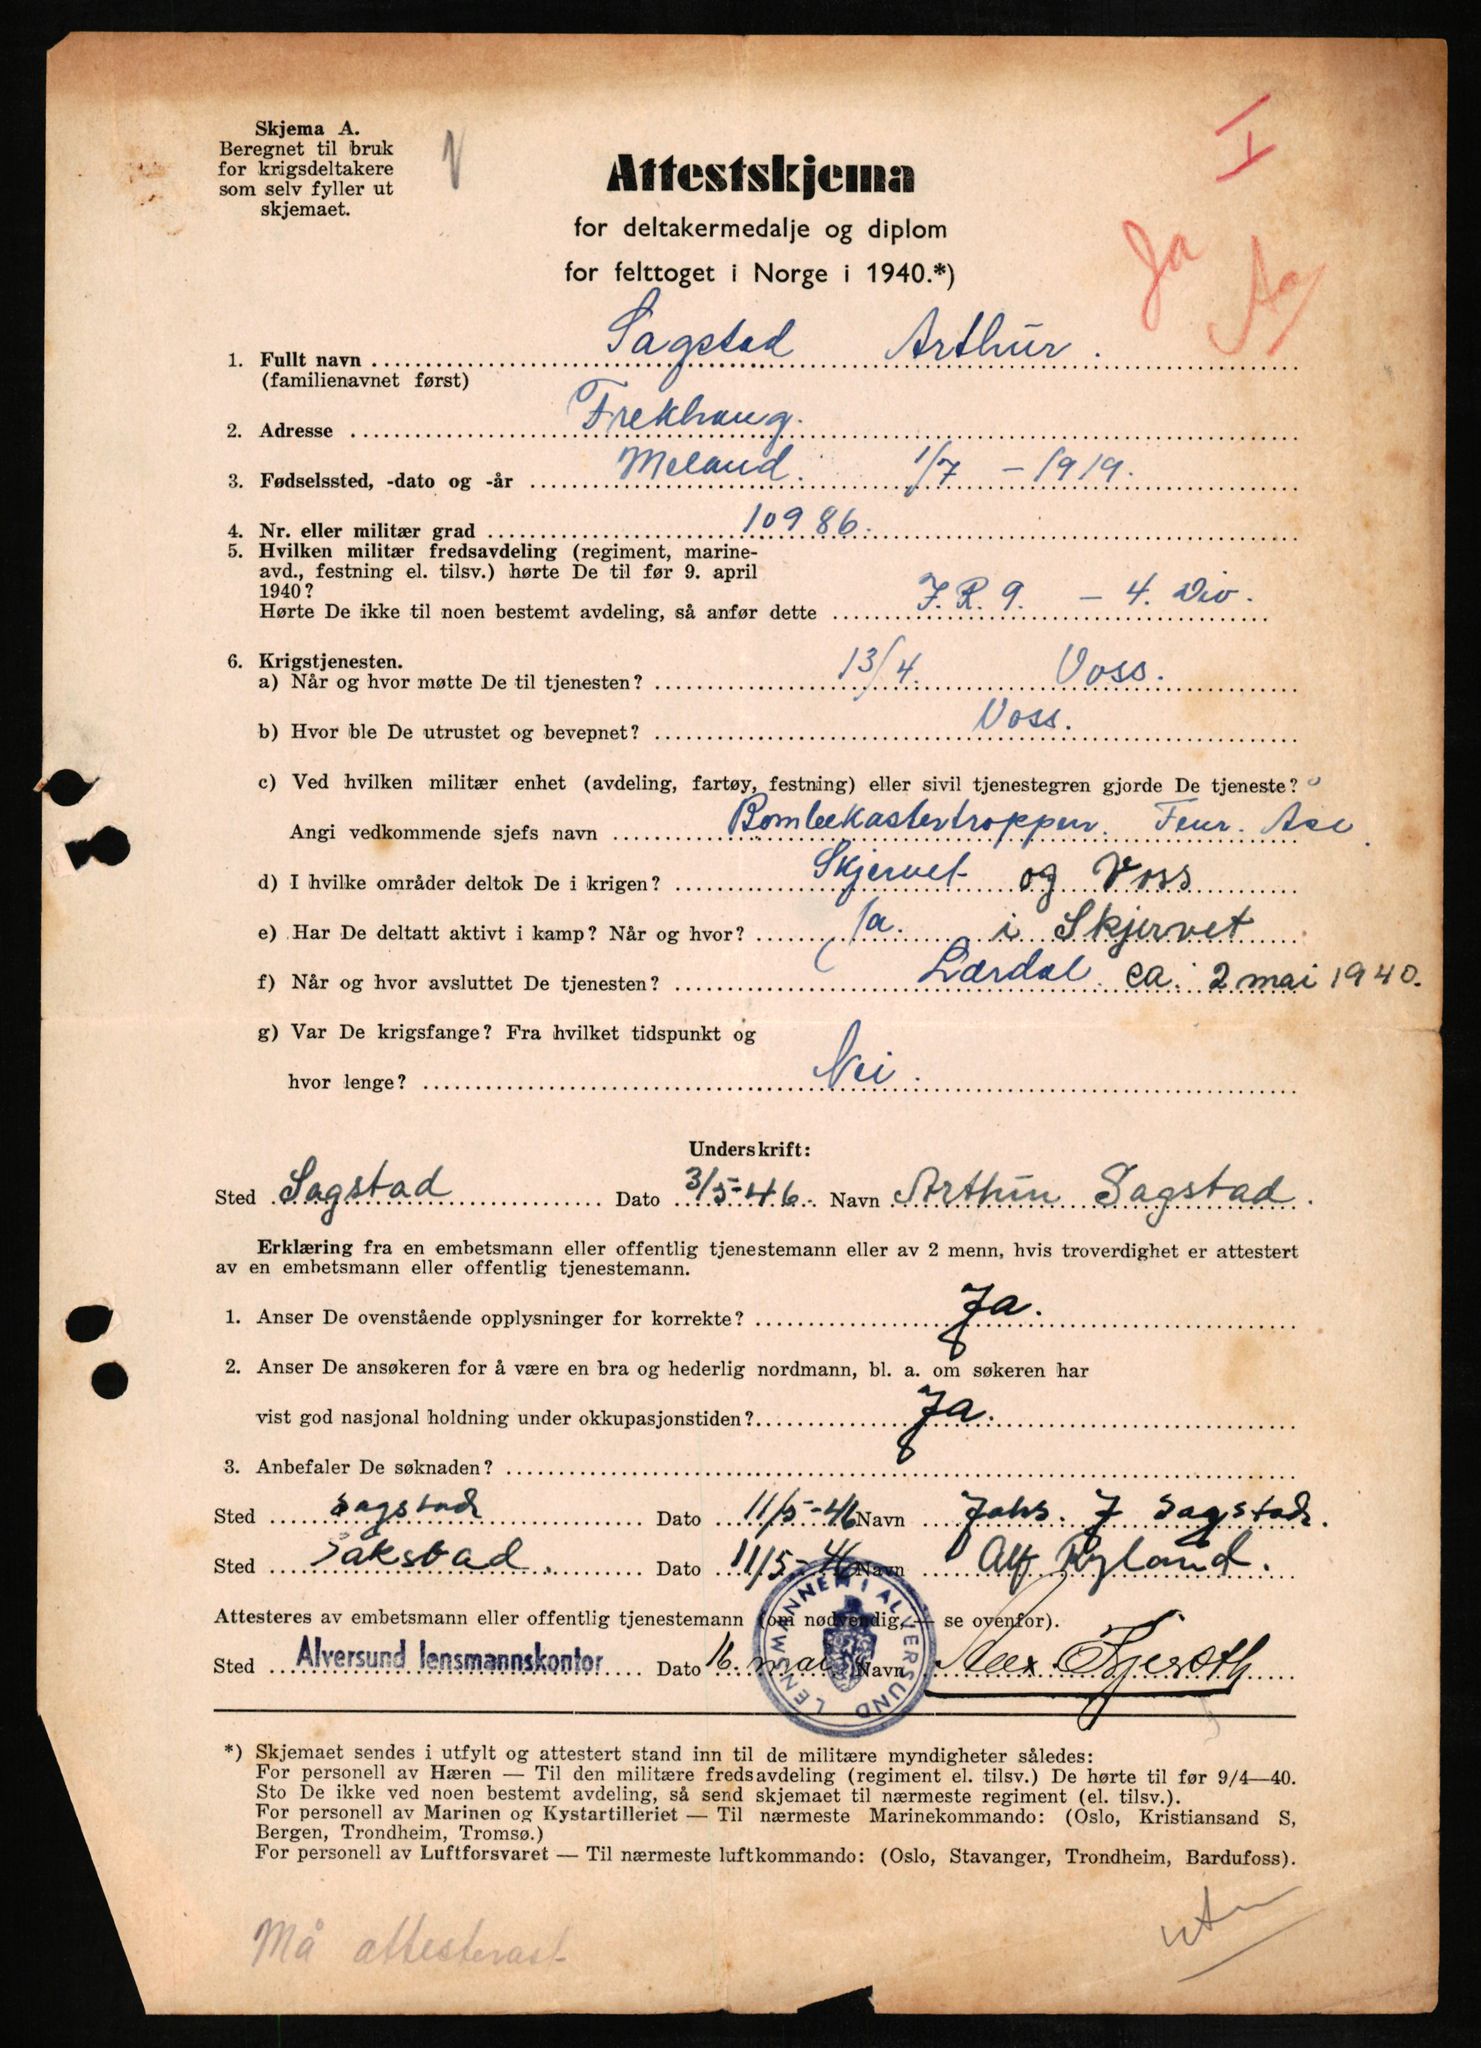 Skjema A.
Beregnet til bruk
for krigsdeltakere
som selv fyller ut
skjemaet.
I
Attestskjema
for deltakermedalje og diplom
for felttoget i Norge i 1940.*)
Ja
1. Fullt navn Sagstad Arthur.
(familienavnet først)
2. Adresse Frekhaug.
3. Fødselssted, -dato og -år Meland. 1/7 - 1919.
4. Nr. eller militær grad 10986.
5. Hvilken militær fredsavdeling (regiment, marine-
avd., festning el. tilsv.) hørte De til før 9. april
1940?
Hørte De ikke til noen bestemt avdeling, så anfør dette J.R. 9. - 4. Div.
6. Krigstjenesten.
a) Når og hvor møtte De til tjenesten? 13/4. Voss.
b) Hvor ble De utrustet og bevepnet? Voss.
c) Ved hvilken militær enhet (avdeling, fartøy, festning) eller sivil tjenestegren gjorde De tjeneste?
Angi vedkommende sjefs navn Bombekastertroppen. Fenr. Ase
d) I hvilke områder deltok De i krigen? Skjervet og Voss
e) Har De deltatt aktivt i kamp? Når og hvor? Ja. i Skjervet
f) Når og hvor avsluttet De tjenesten? Lærdal ca. 2 mai 1940.
g) Var De krigsfange? Fra hvilket tidspunkt og
hvor lenge? Nei.
Underskrift:
Sted Sagstad Dato 3/5-46. Navn Arthur Sagstad.
Erklæring fra en embetsmann eller offentlig tjenestemann eller av 2 menn, hvis troverdighet er attestert
av en embetsmann eller offentlig tjenestemann.
1. Anser De ovenstående opplysninger for korrekte? Ja.
2. Anser De ansøkeren for å være en bra og hederlig nordmann, bl. a. om søkeren har
vist god nasjonal holdning under okkupasjonstiden? Ja.
3. Anbefaler De søknaden?
Sted Sagstad Dato 11/5-46 Navn Johs. J Sagstad.
Sted Sakstad. Dato 11/5-46 Navn Alf Ryland.
Attesteres av embetsmann eller offentlig tjenestemann (om nødvendig, — se ovenfor).
Sted Alversund lensmannskontor Dato 16. mai Navn
LENSMANNEN I ALVERSUND
*) Skjemaet sendes i utfylt og attestert stand inn til de militære myndigheter således:
For personell av Hæren — Til den militære fredsavdeling (regiment el. tilsv.) De hørte til før 9/4—40.
Sto De ikke ved noen bestemt avdeling, så send skjemaet til nærmeste regiment (el. tilsv.).
For personell av Marinen og Kystartilleriet — Til nærmeste Marinekommando: (Oslo, Kristiansand S,
Bergen, Trondheim, Tromsø.)
For personell av Luftforsvaret — Til nærmeste luftkommando: (Oslo, Stavanger, Trondheim, Bardufoss).
Må attesterast